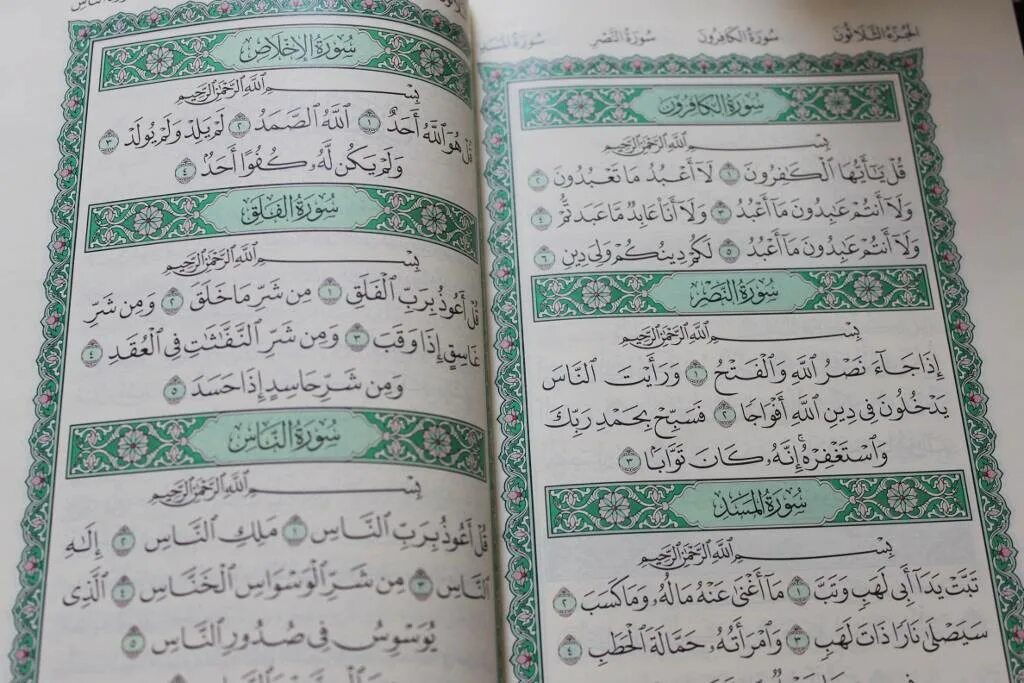 الجزء الثلاثون سورة الكافرون سورة النصر سورة المسد
سُورَةُ الكَافِرُونَ
بِسْمِ اللَّهِ الرَّحْمَٰنِ الرَّحِيمِ
قُلْ يَٰٓأَيُّهَا ٱلْكَٰفِرُونَ ١ لَآ أَعْبُدُ مَا تَعْبُدُونَ ٢
وَلَآ أَنتُمْ عَٰبِدُونَ مَآ أَعْبُدُ ٣ وَلَآ أَنَا۠ عَابِدٌ مَّا عَبَدتُّمْ ٤
وَلَآ أَنتُمْ عَٰبِدُونَ مَآ أَعْبُدُ ٥ لَكُمْ دِينُكُمْ وَلِىَ دِينِ ٦
سُورَةُ النَّصْرِ
بِسْمِ اللَّهِ الرَّحْمَٰنِ الرَّحِيمِ
إِذَا جَآءَ نَصْرُ ٱللَّهِ وَٱلْفَتْحُ ١ وَرَأَيْتَ ٱلنَّاسَ
يَدْخُلُونَ فِى دِينِ ٱللَّهِ أَفْوَاجًا ٢ فَسَبِّحْ بِحَمْدِ رَبِّكَ
وَٱسْتَغْفِرْهُ إِنَّهُۥ كَانَ تَوَّابًۢا ٣
سُورَةُ المَسَدِ
بِسْمِ اللَّهِ الرَّحْمَٰنِ الرَّحِيمِ
تَبَّتْ يَدَآ أَبِى لَهَبٍ وَتَبَّ ١ مَآ أَغْنَىٰ عَنْهُ مَالُهُۥ وَمَا كَسَبَ ٢
سَيَصْلَىٰ نَارًا ذَاتَ لَهَبٍ ٣ وَٱمْرَأَتُهُۥ حَمَّالَةَ ٱلْحَطَبِ ٤
سُورَةُ الإِخْلَاصِ
بِسْمِ اللَّهِ الرَّحْمَٰنِ الرَّحِيمِ
قُلْ هُوَ ٱللَّهُ أَحَدٌ ١ ٱللَّهُ ٱلصَّمَدُ ٢ لَمْ يَلِدْ وَلَمْ يُولَدْ ٣
وَلَمْ يَكُن لَّهُۥ كُفُوًا أَحَدٌۢ ٤
سُورَةُ الفَلَقِ
بِسْمِ اللَّهِ الرَّحْمَٰنِ الرَّحِيمِ
قُلْ أَعُوذُ بِرَبِّ ٱلْفَلَقِ ١ مِن شَرِّ مَا خَلَقَ ٢ وَمِن شَرِّ
غَاسِقٍ إِذَا وَقَبَ ٣ وَمِن شَرِّ ٱلنَّفَّٰثَٰتِ فِى ٱلْعُقَدِ ٤
وَمِن شَرِّ حَاسِدٍ إِذَا حَسَدَ ٥
سُورَةُ النَّاسِ
بِسْمِ اللَّهِ الرَّحْمَٰنِ الرَّحِيمِ
قُلْ أَعُوذُ بِرَبِّ ٱلنَّاسِ ١ مَلِكِ ٱلنَّاسِ ٢ إِلَٰهِ
ٱلنَّاسِ ٣ مِن شَرِّ ٱلْوَسْوَاسِ ٱلْخَنَّاسِ ٤ ٱلَّذِى
يُوَسْوِسُ فِى صُدُورِ ٱلنَّاسِ ٥